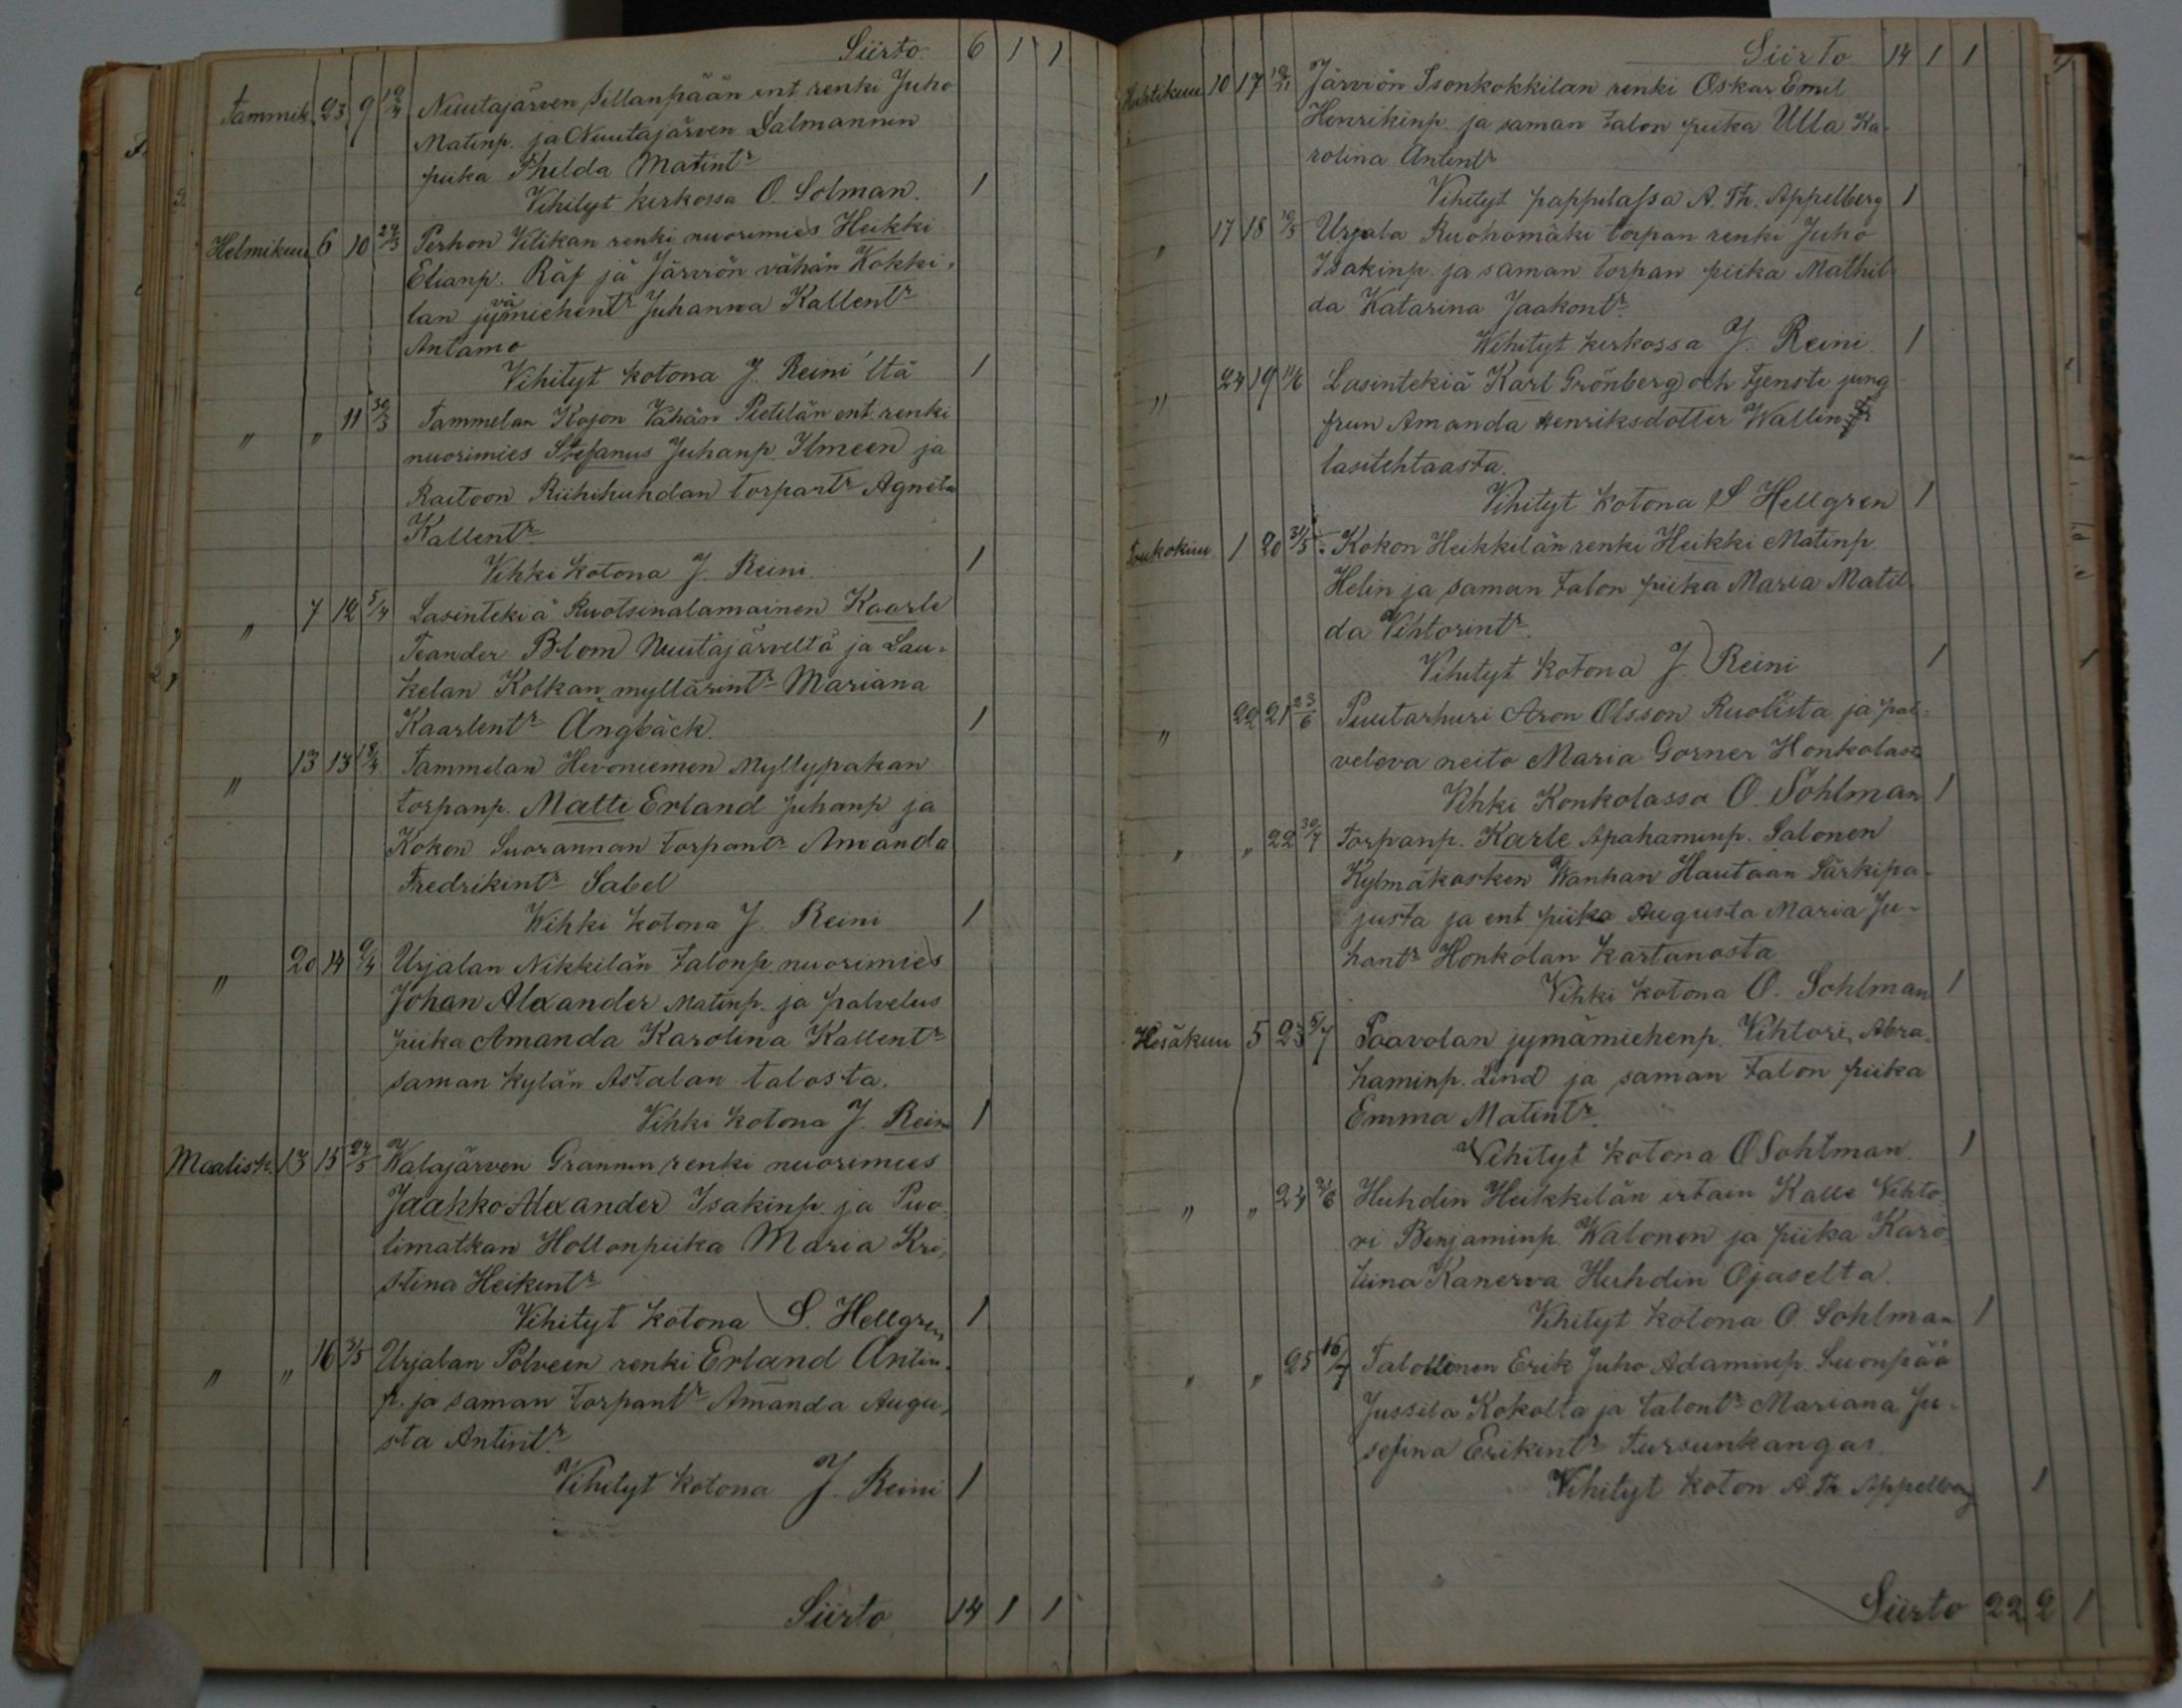 Siirto 6 1 1
Tammik. 23 9 Nuutajärven Sillanpään ent renki Juho
Matinp. ja Nuutajärven Salmannen
piika Thilda Matintr
Vihityt kirkossa O. Solman. 1
Helmikuu 6 10 24/3 Perhon Vilikan renki nuorimies Heikki
Elianp. Räf ja Järviön vähän Kokki-
lan jyvämiehentr Juhanna Kallentr
Antamo
Vihityt kotona J. Reini'ltä 1
" " 11 30/3 Tammelan Kojon Vähän Pietilän ent. renki
nuorimies Stefanus Juhanp Ilmeen ja
Raitoon Riihihuhdan torpantr Agneta
Kallentr
Vihki kotona J. Reini. 1
" 7 12 5/4 Lasintekiä Ruotsinalamainen Kaarle
Teander Blom Nuutajärveltä ja Lau-
kelan Kolkan myllärintr Mariana
Kaarlentr Ängbäck. 1
" 13 13 18/4 Tammelan Hevoniemen Myllypakan
torpanp. Matti Erland Juhanp ja
Kokon Suorannan torpantr Amanda
Fredrikintr Sabel
Wihki kotona J. Reini 1
" 20 14 Urjalan Nikkilän talonp nuorimies
Johan Alexander Matinp. ja palvelus
piika Amanda Karolina Kallentr
saman kylän Astalan talosta.
Vihki kotona J. Reini 1
Maalisk. 13 15 24/5 Walajärven Grannin renki nuorimies
Jaakko Alexander Isakinp. ja Puo-
limatkan Hollonpiika Maria Kri-
stina Heikintr
Vihityt kotona S. Hellgren 1
" " 16 3/5 Urjalan Polveen renki Erland Antin-
p. ja saman torpantr Amanda Augu-
sta Antintr
Vihityt kotona J. Reini 1
Siirto 14 1 1
Siirto 14 1 1
Huhtikuu 10 17 Järviön Isonkokkilan renki Oskar Emil
Henrikinp. ja saman talon piika Ulla Ka-
rolina Antintr
Vihityt pappilassa A. Th. Appelberg 1
" 17 18 10/5 Urjala Ruohomäki torpan renki Juho
Isakinp. ja saman torpan piika Mathil-
da Katarina Jaakontr.
Wihityt kirkossa J. Reini. 1
" 24 19 11/6 Lasintekiä Karl Grönberg och tjenste jung
frun Amanda Henriksdotter Wallin
lasitehtaasta.
Vihityt kotona S Hellgren 1
Toukokuu 1 20 31/5 Kokon Heikkilän renki Heikki Matinp
Helin ja saman talon piika Maria Matil-
da Vihtorintr.
Vihityt kotona J. Reini 1
" 22 21 23/6 Puutarhuri Aron Olsson Ruotista ja pal-
veleva neito Maria Gorner Honkolasta
Vihki Konkolassa O. Sohlman 1
" " 22 30/7 Torpanp. Karle Apahaminp. Salonen
Kylmäkosken Wanhan Hautaan Särkipa-
justa ja ent piika Augusta Maria Ju-
hantr Honkolan Kartanosta
Vihki kotona O. Sohlman 1
Kesäkuu 5 23 5/7 Paavolan jymämiehenp. Vihtori Abra-
haminp. Lind ja saman talon piika
Emma Matintr.
Vihityt kotona O Sohlman. 1
" " 24 2/6 Huhdin Heikkilän irtain Kalle Vihto-
ri Benjaminp. Walonen ja piika Karo-
liina Kanerva Huhdin Ojaselta.
Vihityt kotona O. Sohlman 1
" " 25 16/7 Talollinen Erik Juho Adaminp. Suonpää
Jussila Kokolta ja talontr Mariana Ju-
sefina Erikintr Tursunkangas.
Vihityt koton A. Th. Appelberg 1
Siirto 22 2 1